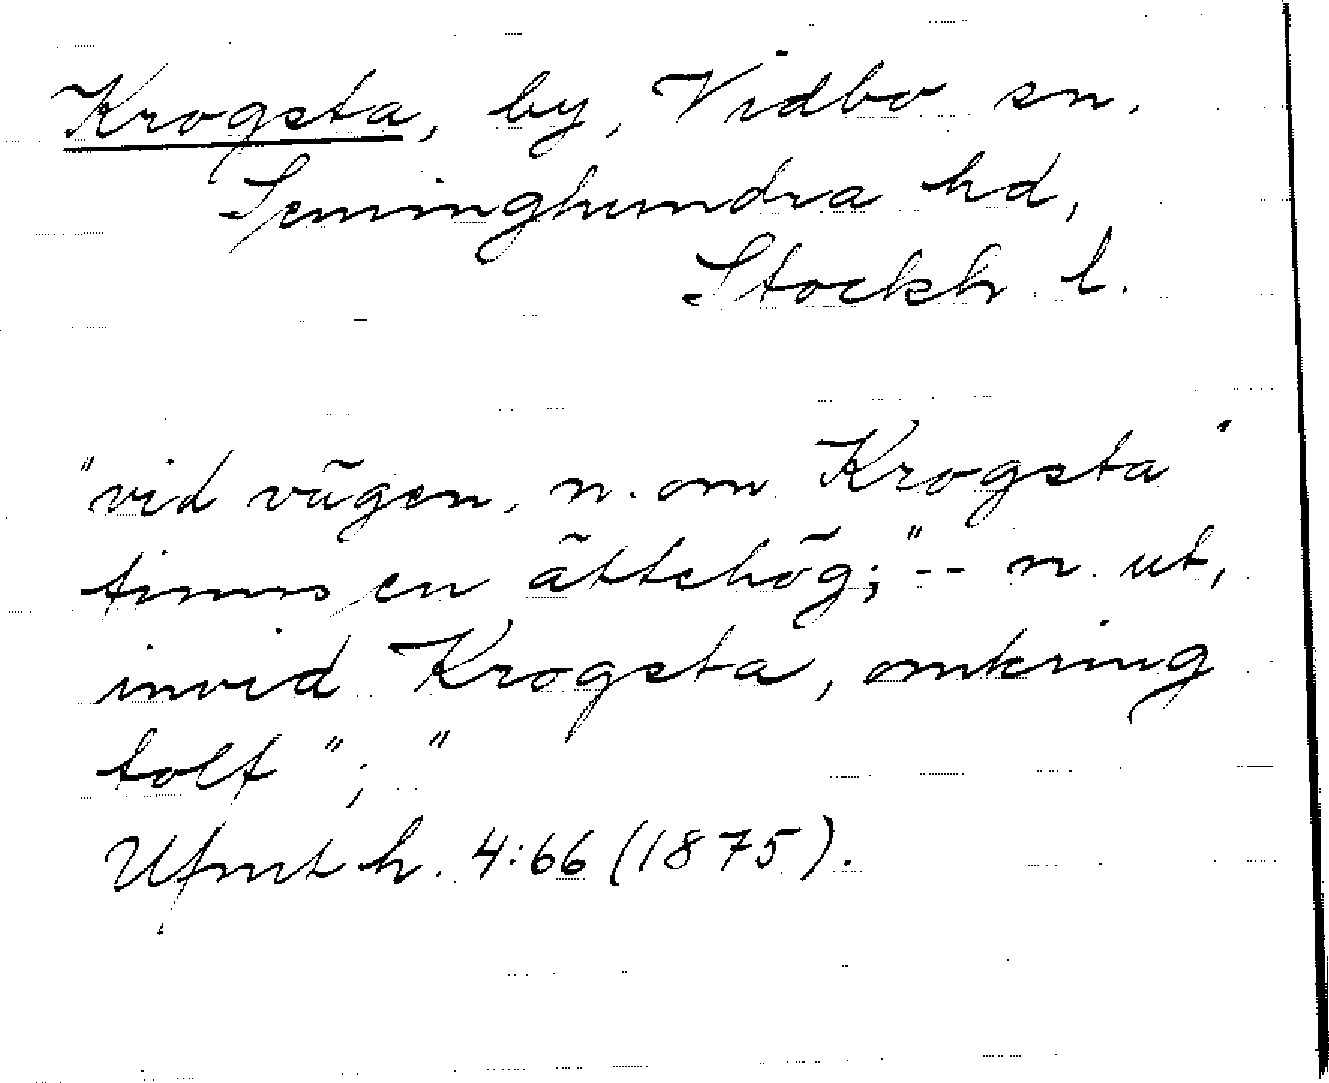 Krogsta, by, Vidbo sn.
Seminghundra hd,
Stockh l.
"vid vägen, n. om Krogsta"
finns en ättehög;" -- n. ut,
invid Krogsta, omkring
tolf"; "
Ufmt h. 4:66 (1875).